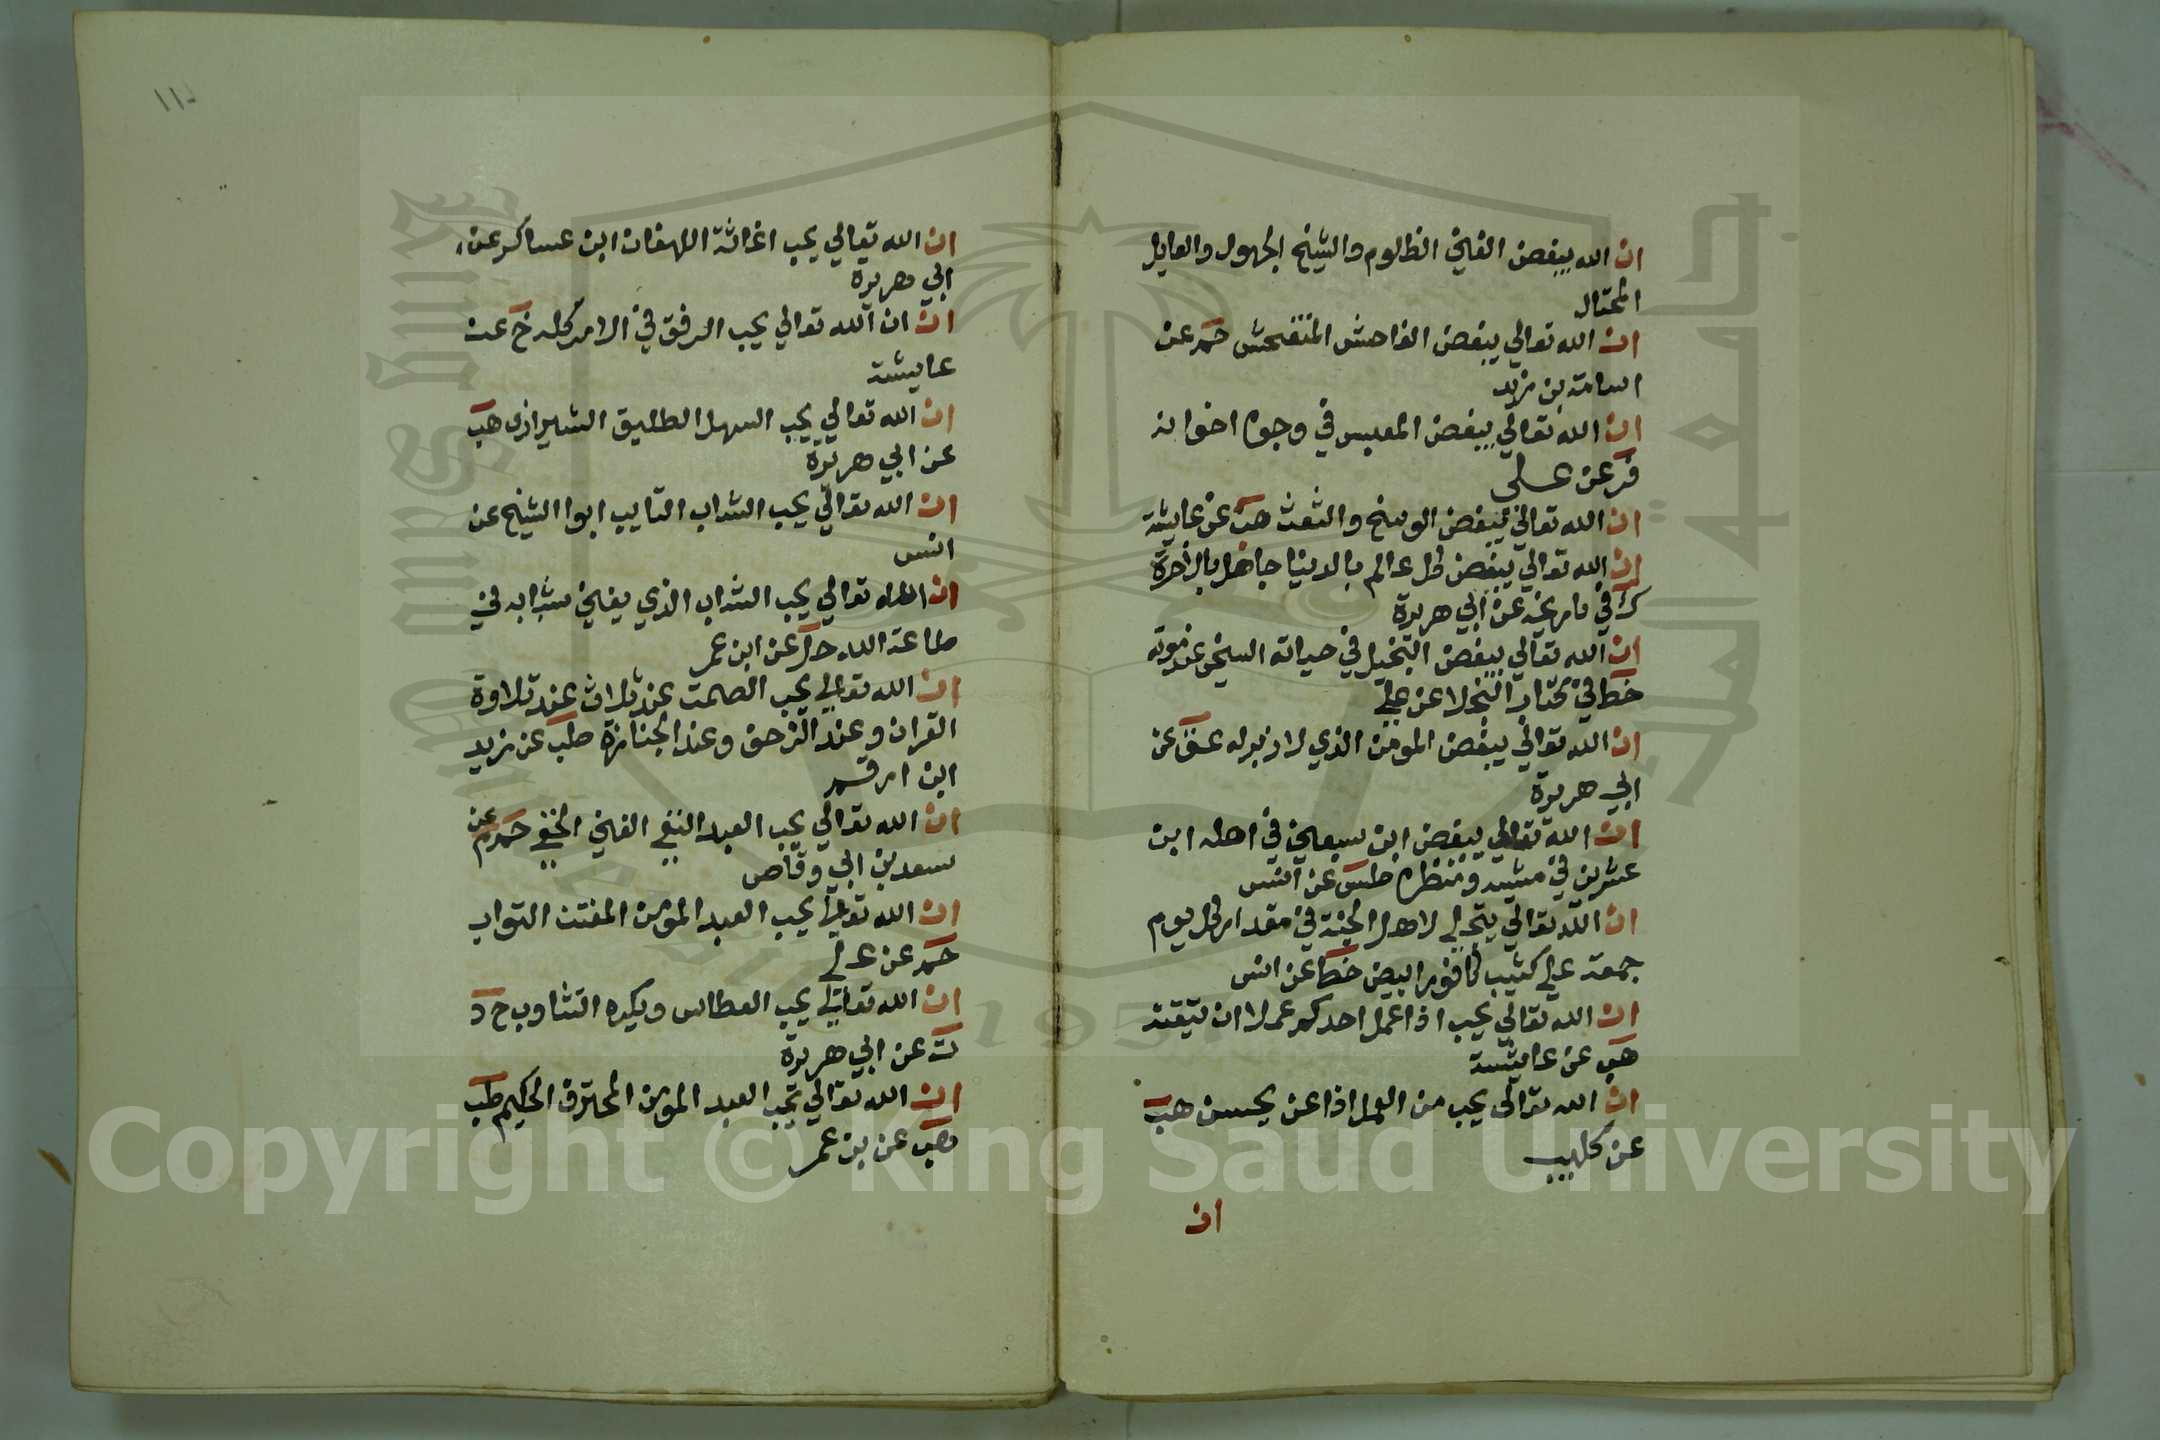 ان الله يبغض الغني الظلوم والشيخ الجهول والعايل
المختال
ان الله تعالي يبغض الفاحش المتفحش حم عن
اسامة بن زيد
ان الله تعالي يبغض المعبس في وجوه اخوانه
فر عن علي
ان الله تعالي يبغض الوسخ والشعث هب عن عايشة
ان الله تعالي يبغض كل عالم بالدنيا جاهل بالاخرة
ك في تاريخه عن ابي هريرة
ان الله تعالي يبغض البخيل في حياته السخي عند موته
خط في كتاب البخلا عن علي
ان الله تعالي يبغض المومن الذي لا زبر له عق عن
ابي هريرة
ان الله تعالي يبغض ابن سبعين في اهله ابن
عشرين في مشيه ومنظره طس عن انس
ان الله تعالي يتجلي لاهل الجنة في مقدار كل يوم
جمعة علي كثيب كافور ابيض خط عن انس
ان الله تعالي يحب اذا عمل احدكم عملا ان يتقنه
هب عن عايشة
ان الله تعالي يحب من العمل اذا عمل يحسن هب
عن كليب
ان
١١
ان الله تعالي يحب اغاثة اللهفان ابن عساكر عن
ابي هريرة
ان ان الله تعالي يحب الرفق في الامر كله خ عن
عايشة
ان الله تعالي يحب السهل الطليق الشيرازي هب
عن ابي هريرة
ان الله تعالي يحب الشاب التايب ابوا الشيخ عن
انس
ان الله تعالي يحب الشاب الذي يفني شبابه في
طاعة الله حل عن ابن عمر
ان الله تعالي يحب الصمت عند ثلاث عند تلاوة
القران وعند الزحف وعند الجنازة طب عن زيد
ابن ارقم
ان الله تعالي يحب العبد التقي الغني الخفي حم م عن
سعد بن ابي وقاص
ان الله تعالي يحب العبد المؤمن المفتن التواب
حم عن علي
ان الله تعالي يحب العطاس ويكره التثاوب خ د
ت عن ابي هريرة
ان الله تعالي يحب العبد المؤمن المحترف الحكيم طب
هب عن بن عمر
جامعة الملك سعود
King Saud University
1957
Copyright © King Saud University